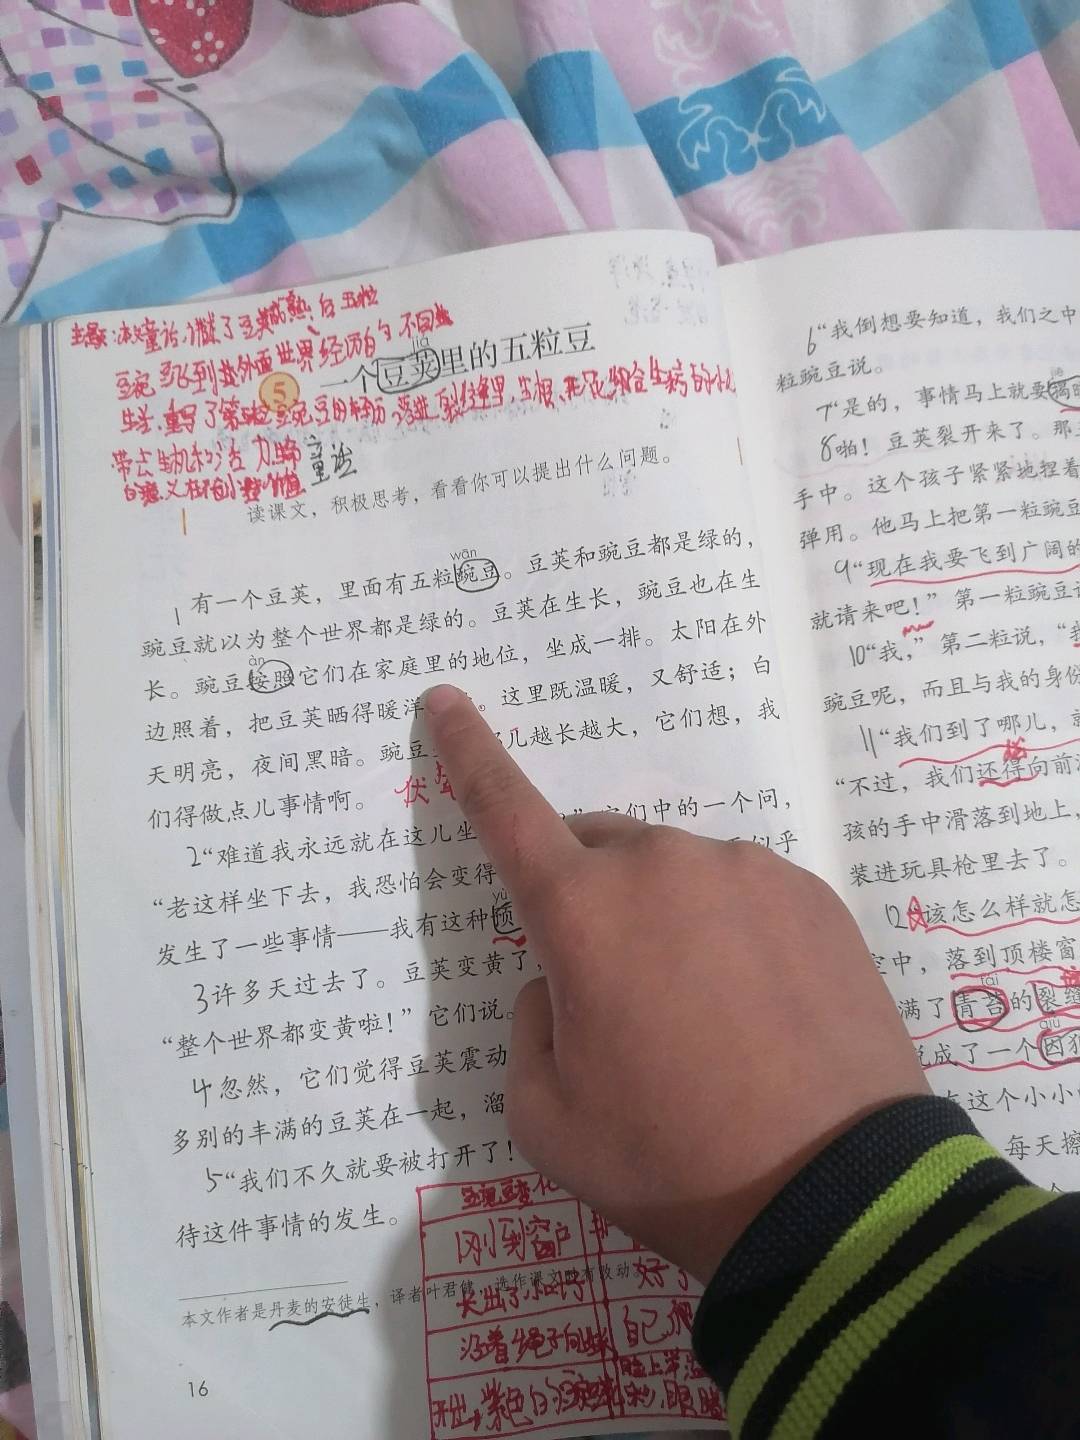 主题:本文童话,讲述了豆荚成熟后五粒
豌豆飞到外面世界经历的不同
5
jiá
一个豆荚里的五粒豆
生长
带去生机和活力
童话
读课文，积极思考，看看你可以提出什么问题。
wān
1有一个豆荚，里面有五粒豌豆。豆荚和豌豆都是绿的，
豌豆就以为整个世界都是绿的。豆荚在生长，豌豆也在生
àn
长。豌豆按照它们在家庭里的地位，坐成一排。太阳在外
边照着，把豆荚晒得暖洋 。这里既温暖，又舒适；白
天明亮，夜间黑暗。豌豆 儿越长越大，它们想，我
们得做点儿事情啊。
伏笔
2“难道我永远就在这儿坐 ”它们中的一个问，
“老这样坐下去，我恐怕会变得 似乎
yù
发生了一些事情——我有这种预
3许多天过去了。豆荚变黄了，
“整个世界都变黄啦！”它们说。
4忽然，它们觉得豆荚震动
多别的丰满的豆荚在一起，溜
5“我们不久就要被打开了！
待这件事情的发生。
豌豆变化
刚到窗户
长出了小叶子
好了
沿着绳子向上长
自己
开出紫色的豌豆花
脸上 眼睛
本文作者是丹麦的安徒生，译者叶君健，选作课文时有改动。
16
6“我倒想要知道，我们之中
粒豌豆说。
jiē
7“是的，事情马上就要揭晓
8啪！豆荚裂开来了。那
手中。这个孩子紧紧地捏着
弹用。他马上把第一粒豌豆
9“现在我要飞到广阔的
就请来吧！”第一粒豌豆
10“我，”第二粒说，“我
豌豆呢，而且与我的身份
11“我们到了哪儿，就
“不过，我们还得向前
孩的手中滑落到地上，
装进玩具枪里去了。
12“该怎么样就怎
空中，落到顶楼窗
tái
满了青苔的裂缝
qiú
成了一个囚犯
在这个小小
每天擦